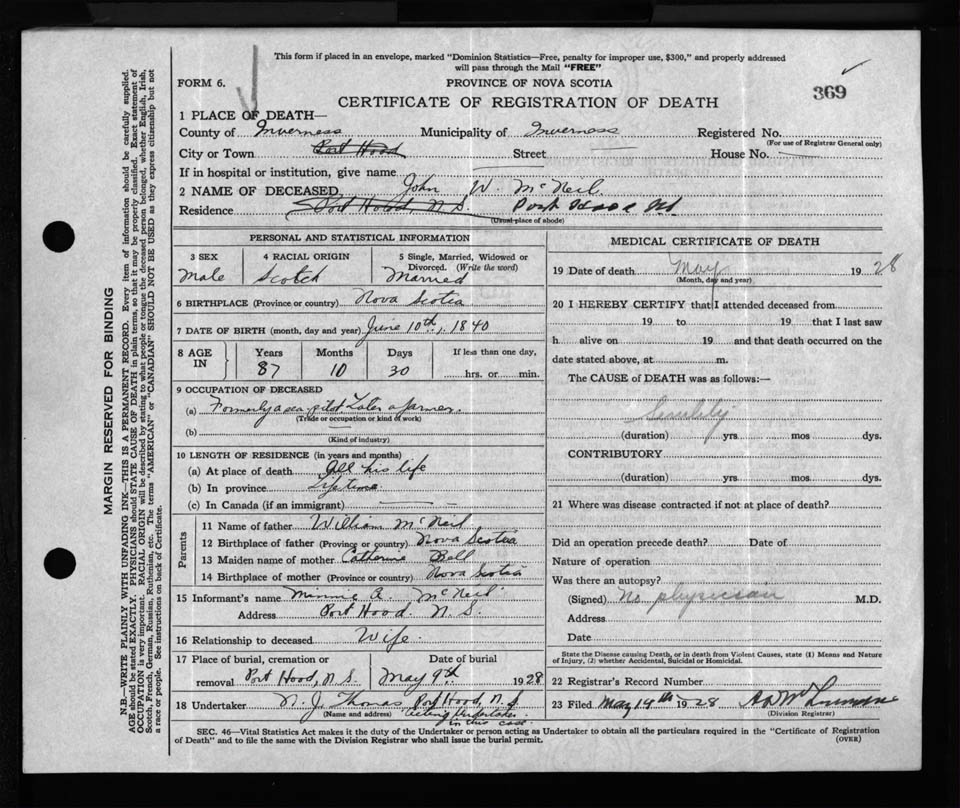 This form if placed in an envelope, marked "Dominion Statistics—Free, penalty for improper use, $300," and properly addressed
will pass through the Mail "FREE"
FORM 6.
PROVINCE OF NOVA SCOTIA
369
CERTIFICATE OF REGISTRATION OF DEATH
1 PLACE OF DEATH—
County of Inverness Municipality of Inverness Registered No.
(For use of Registrar General only)
City or Town Port Hood Street House No.
If in hospital or institution, give name
2 NAME OF DECEASED John W. McNeil
Residence Port Hood, N.S. Port Hood Isd.
(Usual place of abode)
PERSONAL AND STATISTICAL INFORMATION
3 SEX 4 RACIAL ORIGIN 5 Single, Married, Widowed or
Divorced. (Write the word)
Male Scotch Married
6 BIRTHPLACE (Province or country) Nova Scotia
7 DATE OF BIRTH (month, day and year) June 10th, 1840
8 AGE IN Years Months Days If less than one day,
87 10 30 hrs. or min.
9 OCCUPATION OF DECEASED
(a) Formerly a sea pilot Later a farmer.
(Trade or occupation or kind of work)
(b)
(Kind of industry)
10 LENGTH OF RESIDENCE (in years and months)
(a) At place of death All his life
(b) In province Lifetime
(c) In Canada (if an immigrant)
Parents
11 Name of father William McNeil
12 Birthplace of father (Province or country) Nova Scotia
13 Maiden name of mother Catherine Bell
14 Birthplace of mother (Province or country) Nova Scotia
15 Informant's name Minnie R. McNeil
Address Port Hood N.S.
16 Relationship to deceased Wife.
17 Place of burial, cremation or Date of burial
removal Port Hood, N.S. May 9th 1928
18 Undertaker N. J. Thomas Port Hood, N.S.
(Name and address) acting Undertaker
in this case.
MEDICAL CERTIFICATE OF DEATH
19 Date of death May 1928
(Month, day and year)
20 I HEREBY CERTIFY that I attended deceased from
19 to 19 that I last saw
h alive on 19 and that death occurred on the
date stated above, at m.
The CAUSE of DEATH was as follows:—
Senility
(duration) yrs. mos. dys.
CONTRIBUTORY
(duration) yrs. mos. dys.
21 Where was disease contracted if not at place of death?
Did an operation precede death? Date of
Nature of operation
Was there an autopsy?
(Signed) No physician M.D.
Address
Date
State the Disease causing Death, or in death from Violent Causes, state (1) Means and Nature
of Injury, (2) whether Accidental, Suicidal or Homicidal.
22 Registrar's Record Number
23 Filed May 19th 1928
(Division Registrar)
SEC. 46—Vital Statistics Act makes it the duty of the Undertaker or person acting as Undertaker to obtain all the particulars required in the "Certificate of Registration
of Death" and to file the same with the Division Registrar who shall issue the burial permit. (OVER)
MARGIN RESERVED FOR BINDING
N.B.—WRITE PLAINLY WITH UNFADING INK—THIS IS A PERMANENT RECORD. Every item of information should be carefully supplied.
AGE should be stated EXACTLY. PHYSICIANS should STATE CAUSE OF DEATH in plain terms, so that it may be properly classified. Exact statement of
OCCUPATION is very important. RACIAL ORIGIN will be described by stating to what people or tongue the deceased person belonged, whether English, Irish,
Scotch, French, German, Russian, Ruthenian, etc. The terms "AMERICAN" or "CANADIAN" SHOULD NOT BE USED as they express citizenship but not
a race or people. See instructions on back of Certificate.